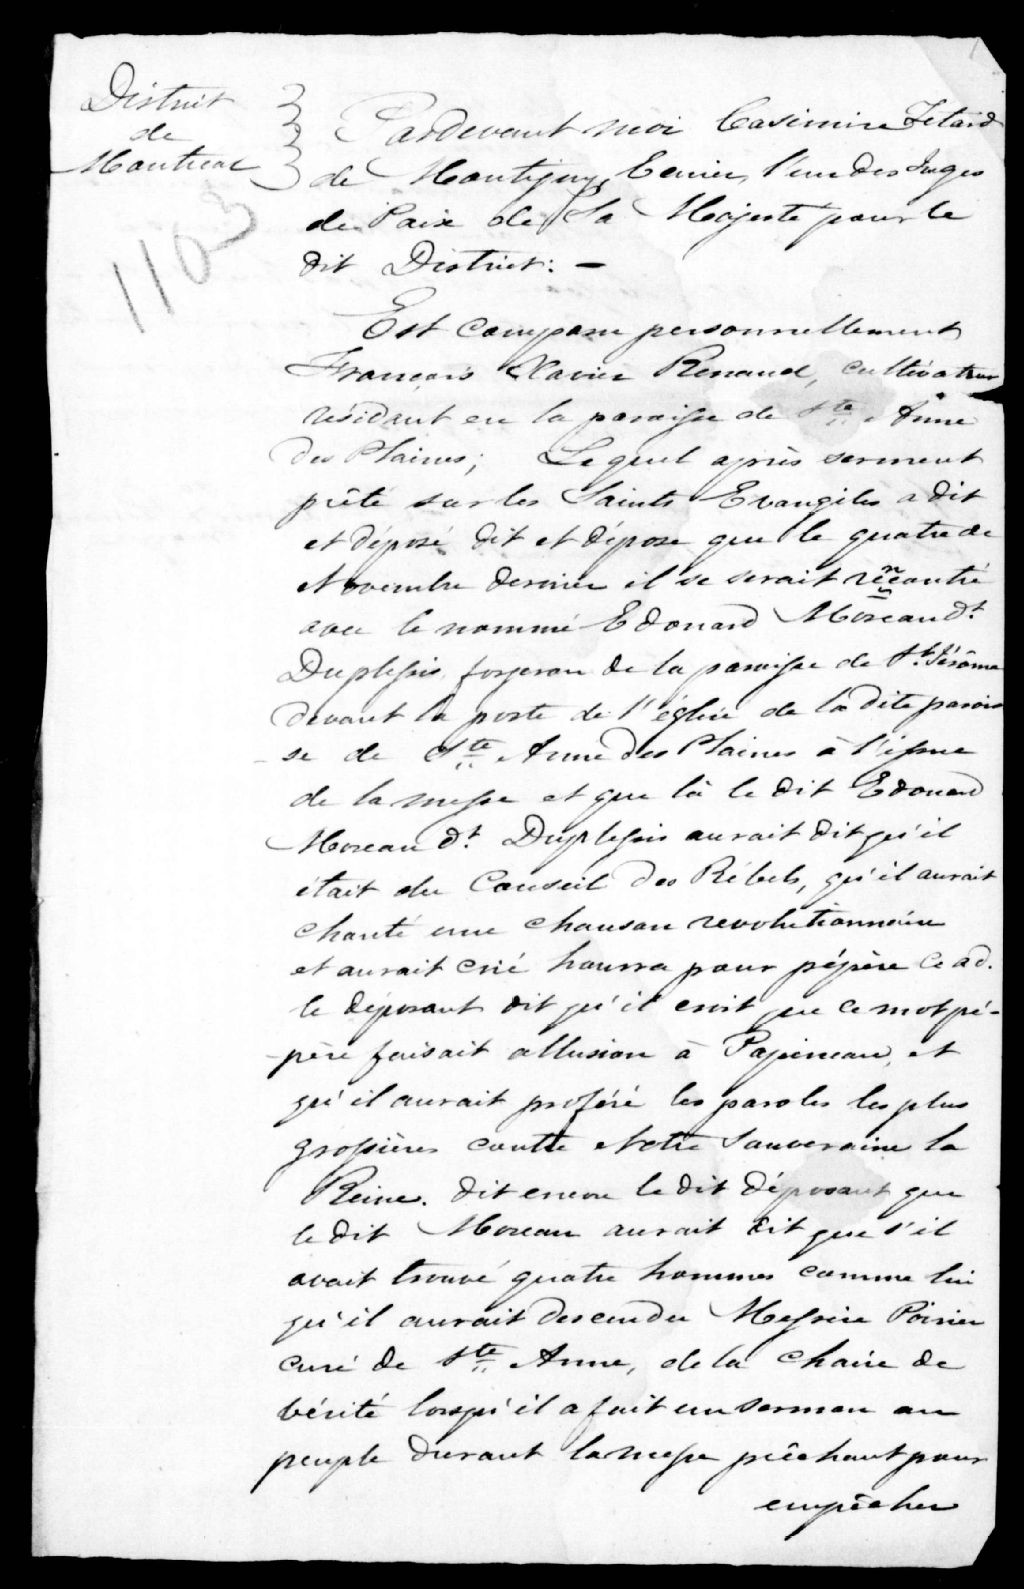 District
de
Montreal
1103
Pardevant moi Casimire Tétard
de Montigny, Ecuier, l'un des Juges
de Paix de Sa Majesté pour le
dit District: —
Est comparu personnellement
François Xavier Renaud, cultivateur
résidant en la paroisse de Ste. Anne
des Plaines; Lequel après serment
prêté sur les Saints Evangiles a dit
et déposé dit et dépose que le quatre de
Novembre dernier il se serait rencontré
avec le nommé Edouard Moreau dt.
Duplessis forgeron de la paroisse de St. Jérôme
devant la porte de l'église de la dite parois
se de Ste. Anne des Plaines à l'issue
de la messe et que là le dit Edouard
Moreau dt. Duplessis aurait dit qu'il
était du Conseil des Rébels, qu'il aurait
chanté une chanson revolutionnaire
et aurait crié hourra pour pépère
le déposant dit qu'il croit que ce mot pé-
-père faisait allusion à Papineau, et
qu'il aurait proféré les paroles les plus
grossières contre Notre Souveraine la
Reine. dit encore le dit déposant que
le dit Moreau aurait dit que s'il
avait trouvé quatre hommes comme lui
qu'il aurait descendu Messire Poirier
curé de Ste. Anne, de la chaire de
vérité lorsqu'il a fait un sermon au
peuple durant la messe prêchant pour
empêcher